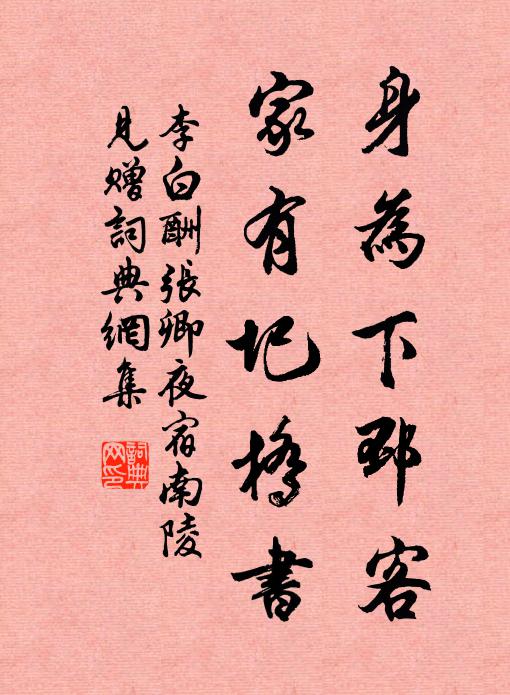 身為下邳客
家有圯橋書
李白酬張卿夜宿南陵
見贈詞典網集
詞典
網印